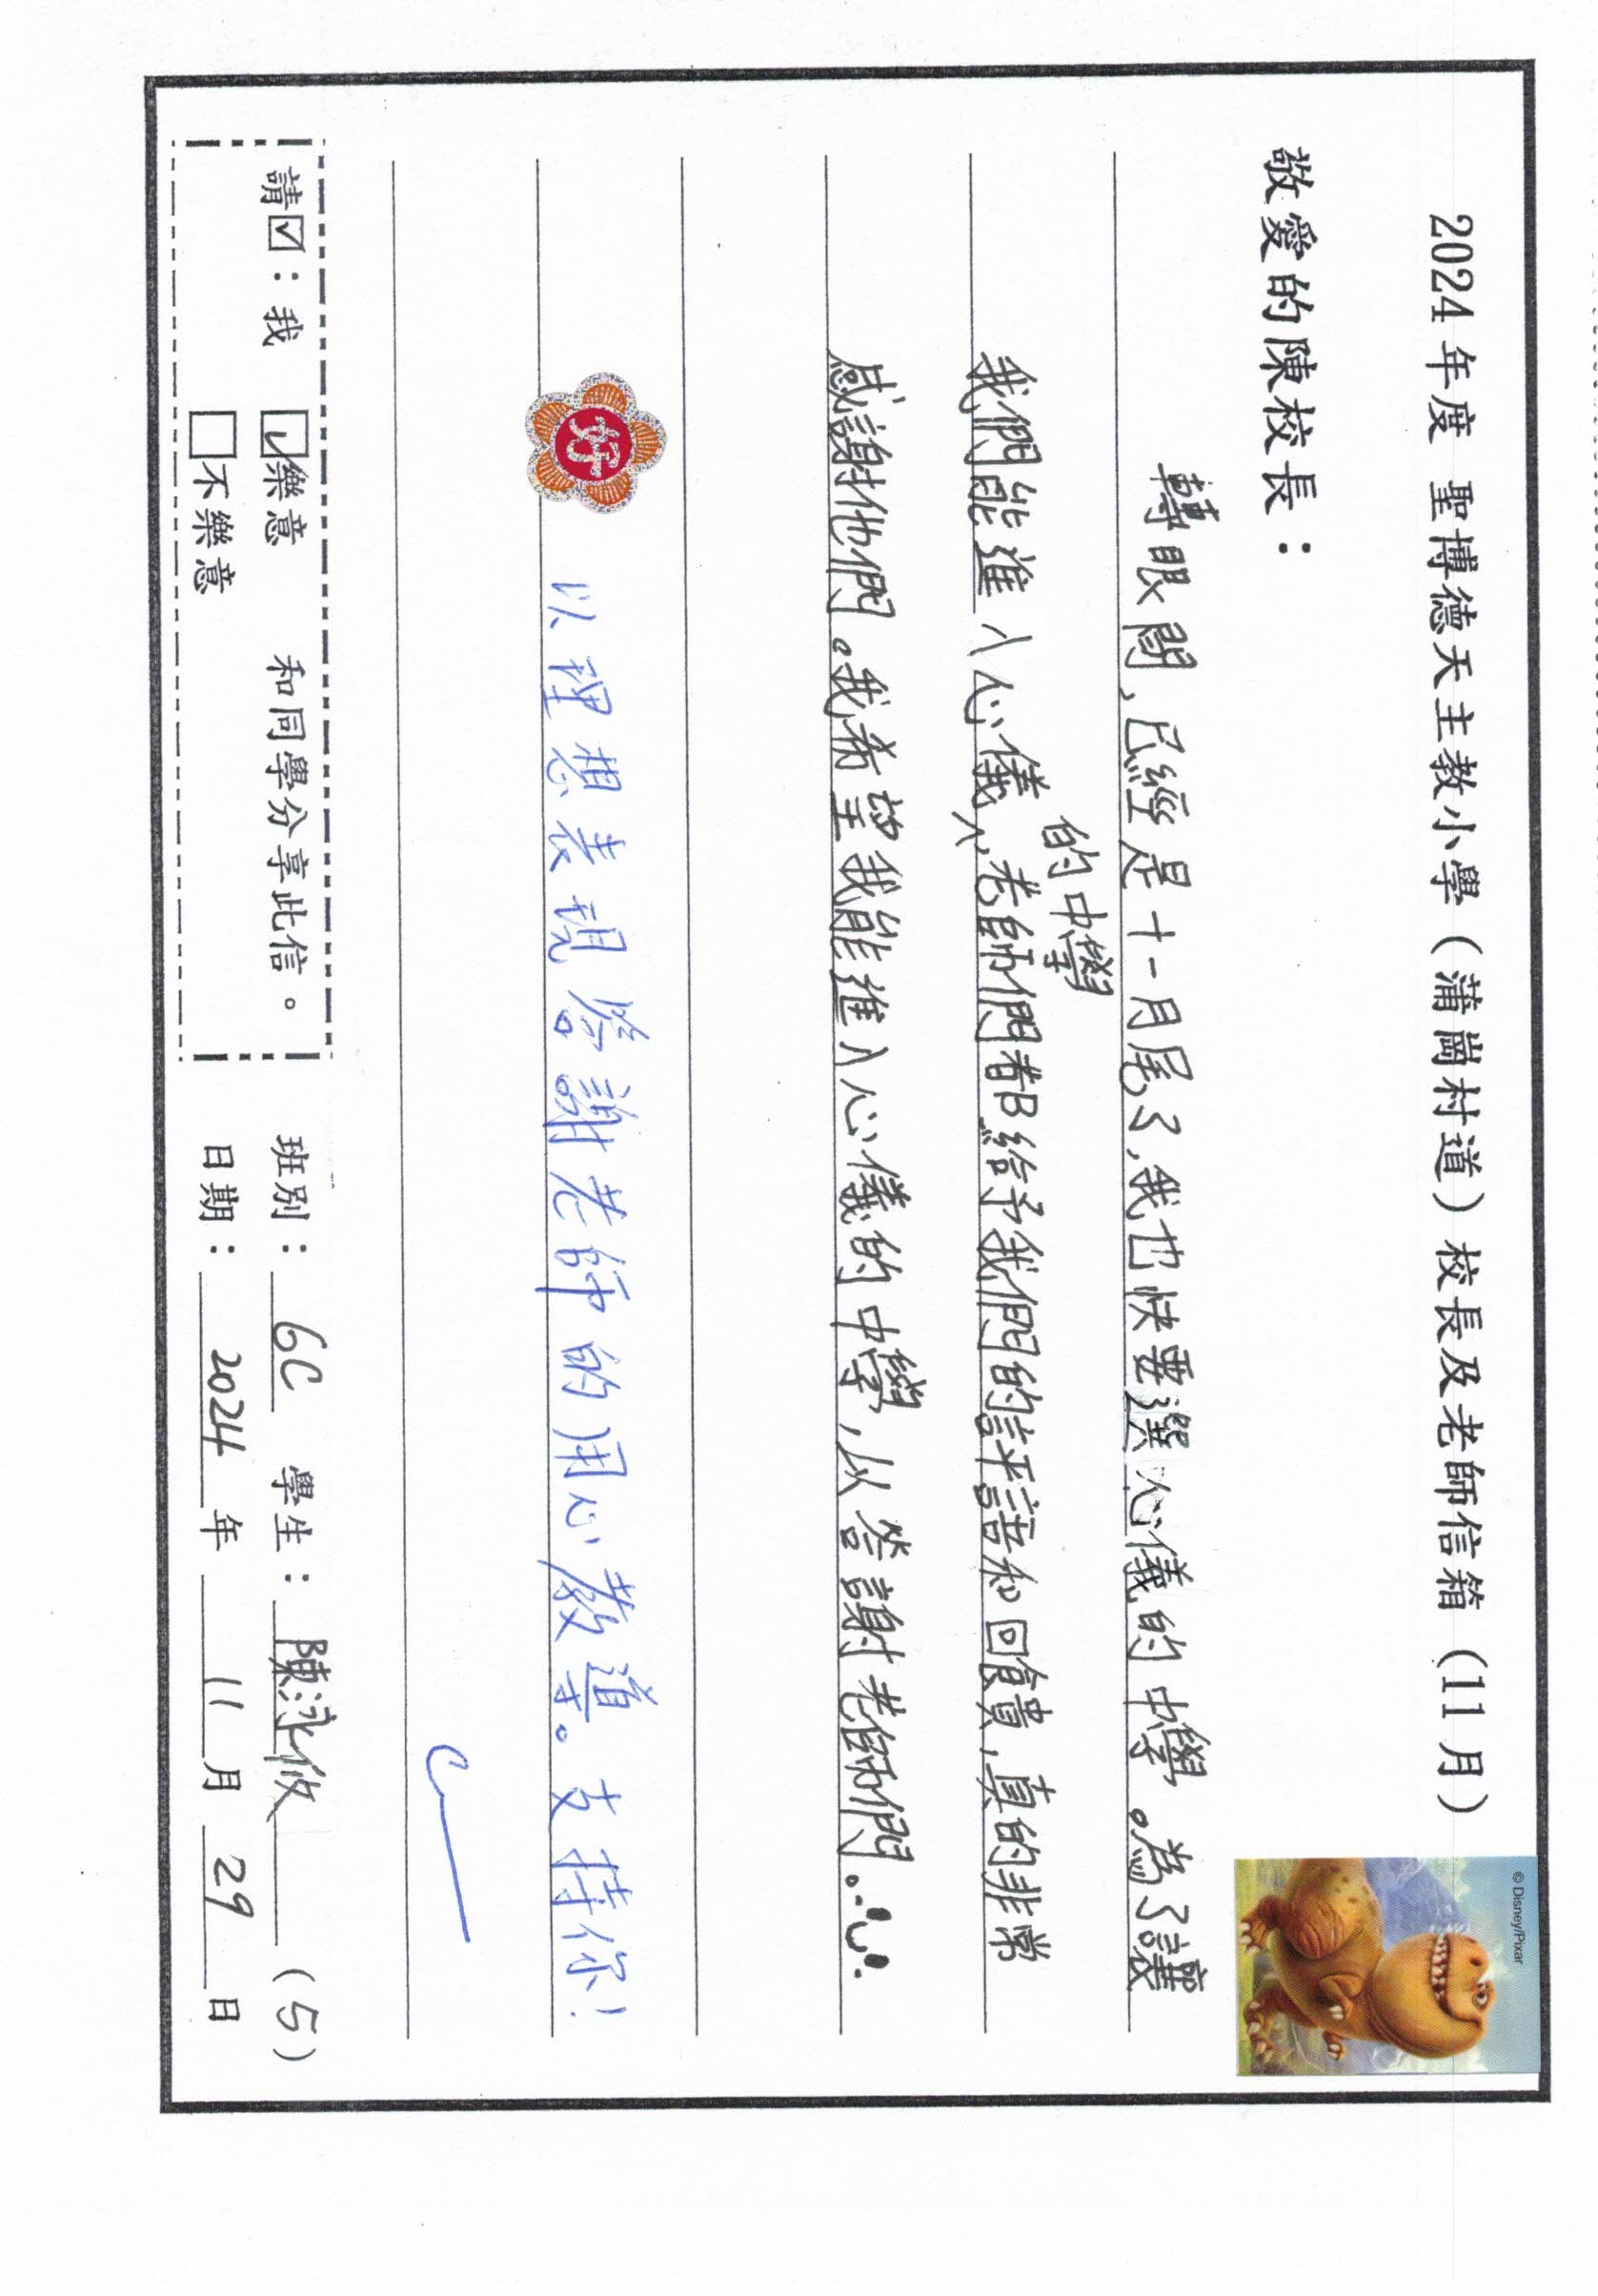 2024年度 聖博德天主教小學（蒲崗村道）校長及老師信箱（11月）
© Disney/Pixar
敬愛的陳校長：
轉眼間,已經是十一月尾了,我也快要選心儀的中學。為了讓
的中學
我們能進入心儀^,老師們都給予我們的評語和回饋,真的非常
感謝他們。我希望我能進入心儀的中學,以答謝老師們。
好
以理想表現答謝老師的用心教導。支持你!
請☑：我 ☑樂意 和同學分享此信。 班別： 6C 學生： 陳泳攸 (5)
□不樂意 日期： 2024 年 11 月 29 日